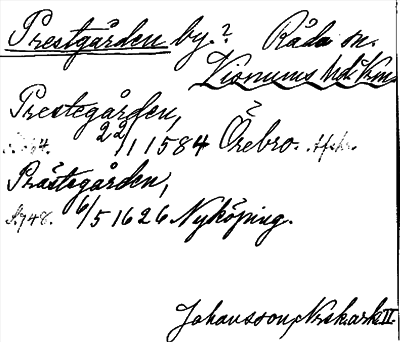 Prestgården by.? Råda sn.
Kinnums hd. Km
Prestegården,
22/1 1584 Örebro. ?
Prästegården,
A748. 6/5 1626 Nyköping.
Johansson, Nrsk.ark. II.